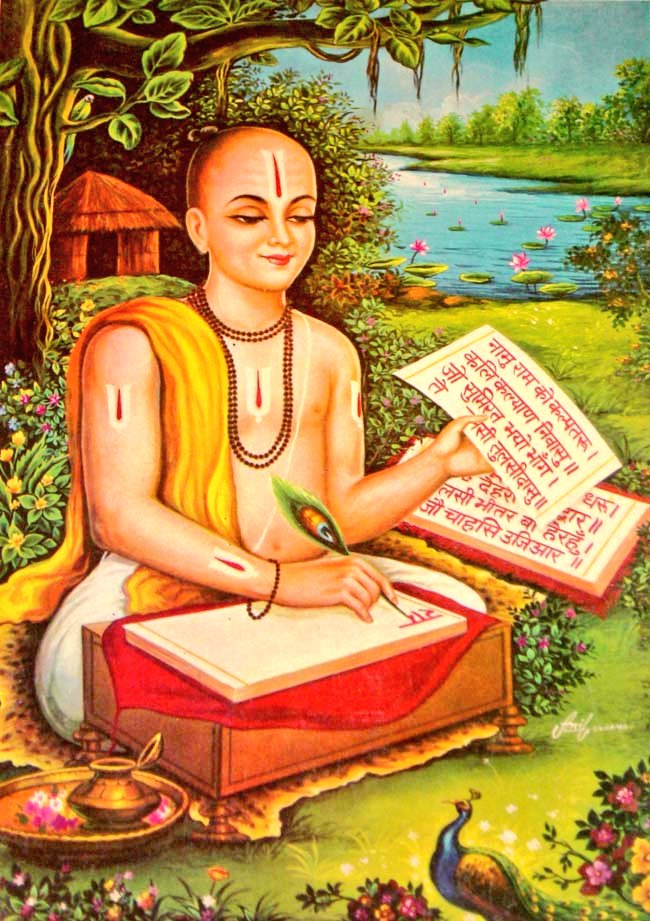 नाम राम को कल्पतरू।
कलि कल्याण निवासु॥
जौ सुमिरत भयो भाँग।
सी तुलसीदासु॥
धरू।
द्वार॥
लसी भीतर बा हेरहुँ।
जौ चाहसि उजिआर॥
राम